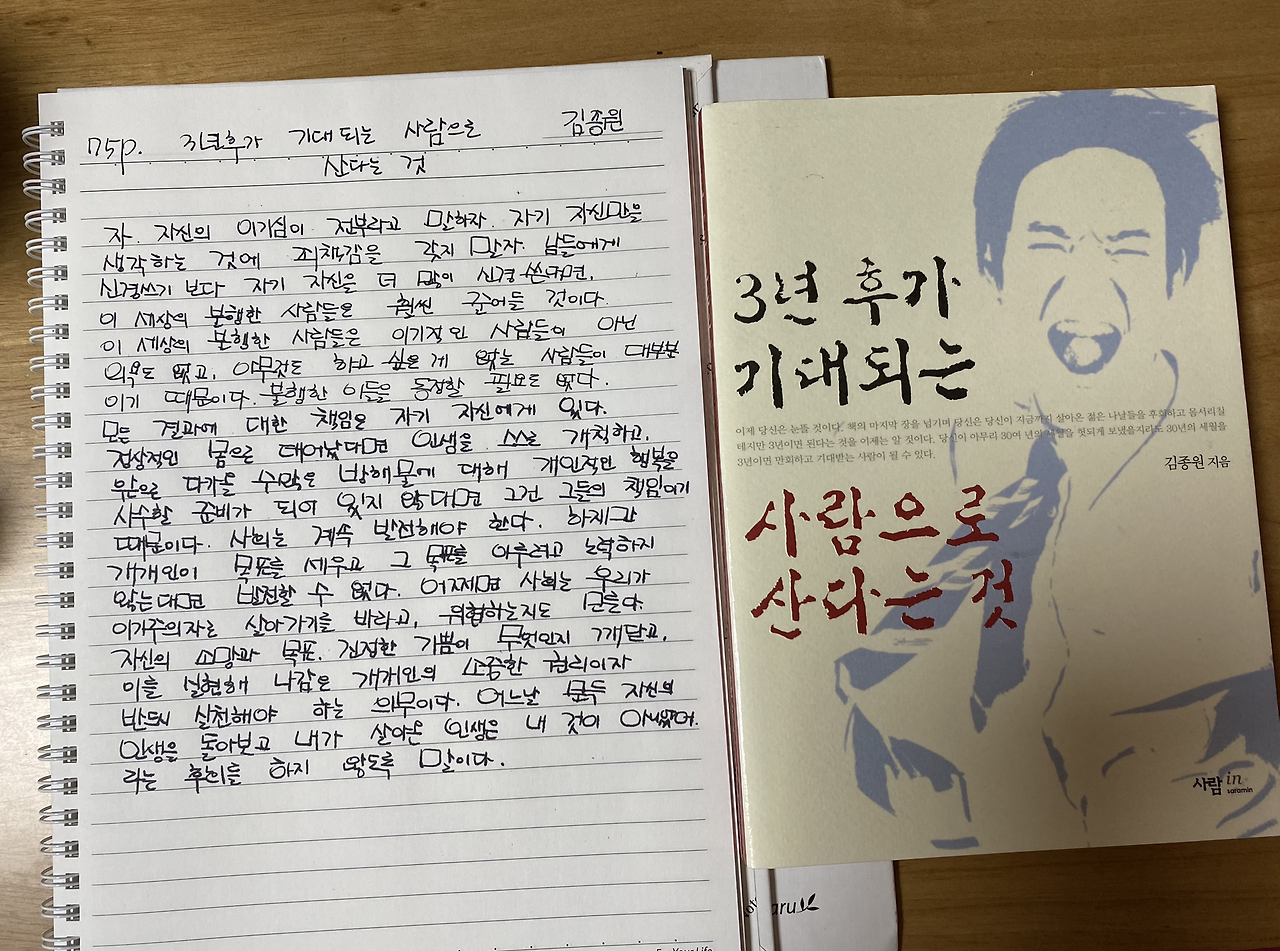 75p. 3년후가 기대되는 사람으로 김종원
산다는 것
자. 자신의 이기심이 전부라고 말하자. 자기 자신만을
생각하는 것에 죄책감을 갖지 말자. 남들에게
신경쓰기 보다 자기 자신을 더 많이 신경 쓴다면,
이 세상의 불행한 사람들은 훨씬 줄어들 것이다.
이 세상의 불행한 사람들은 이기적인 사람들이 아닌
의욕도 없고, 아무것도 하고 싶은 게 없는 사람들이 대부분
이기 때문이다. 불행한 이들을 동정할 필요도 없다.
모든 결과에 대한 책임은 자기 자신에게 있다.
정상적인 몸으로 태어났다면 인생을 스스로 개척하고,
무순으로 다가올 수많은 방해물에 대해 개인적인 행복을
사수할 준비가 되어 있지 않다면 그건 그들의 책임이기
때문이다. 사회는 계속 발전해야 한다. 하지만
개개인이 목표를 세우고 그 목표를 이루려고 노력하지
않는다면 발전할 수 없다. 어쩌면 사회는 우리가
이기주의자로 살아가기를 바라고, 위협하는지도 모른다.
자신의 소망과 목표, 진정한 기쁨이 무엇인지 깨닫고,
이를 실현해 나감은 개개인의 소중한 권리이자
반드시 실천해야 하는 의무이다. 어느날 문득 자신의
인생을 돌아보고 내가 살아온 인생은 내 것이 아니었어.
라는 후회를 하지 않도록 말이다.
3년 후가
기대되는
이제 당신은 눈뜰 것이다. 책의 마지막 장을 넘기며 당신은 당신이 지금까지 살아온 젊은 나날들을 후회하고 몸서리칠
테지만 3년이면 된다는 것을 이제는 알 것이다. 당신이 아무리 30여 년의 세월을 헛되게 보냈을지라도 30년의 세월을
3년이면 만회하고 기대받는 사람이 될 수 있다.
김종원 지음
사람으로
산다는 것
사람in
saramin
aru